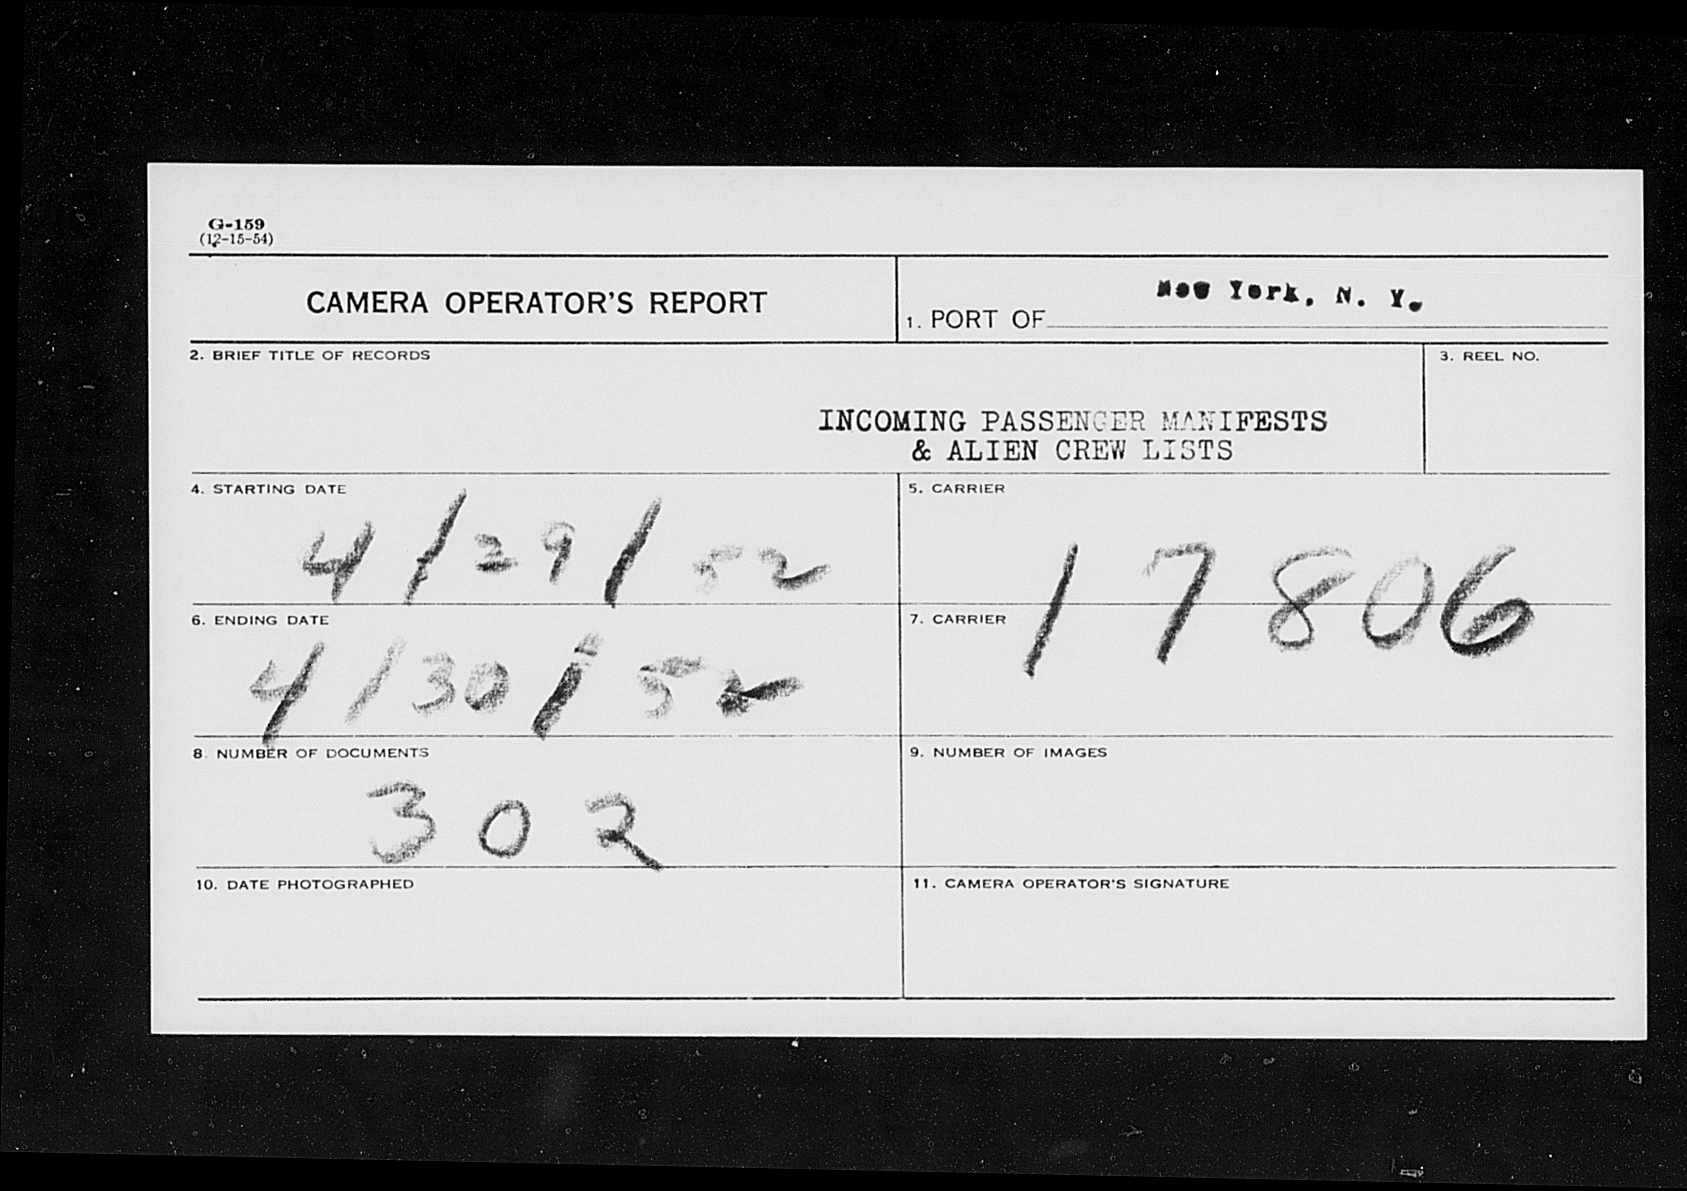 G-159
(12-15-54)
CAMERA OPERATOR'S REPORT
1. PORT OF New York, N. Y.
2. BRIEF TITLE OF RECORDS
INCOMING PASSENGER MANIFESTS
& ALIEN CREW LISTS
3. REEL NO.
4. STARTING DATE
4/29/52
5. CARRIER
17806
6. ENDING DATE
4/30/52
7. CARRIER
8. NUMBER OF DOCUMENTS
302
9. NUMBER OF IMAGES
10. DATE PHOTOGRAPHED
11. CAMERA OPERATOR'S SIGNATURE